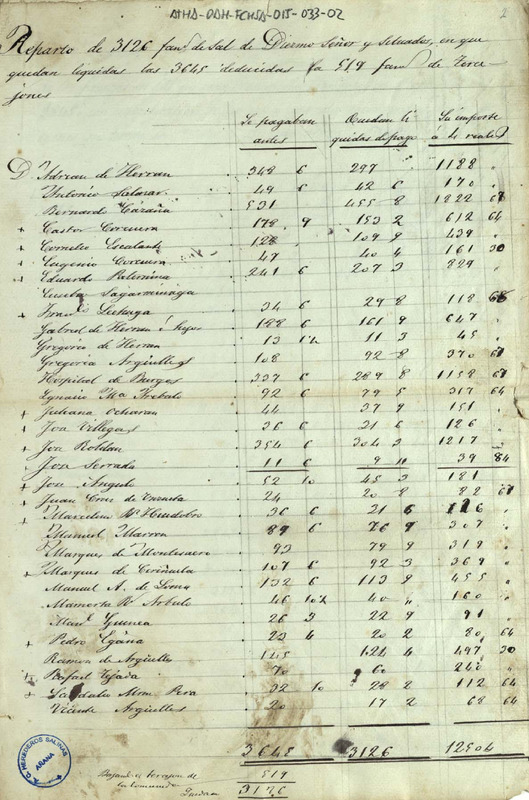 ATHA-DAH-FCHSA-015-033-02
2
Reparto de 3126 fan.s de sal de Diezmo Señor y Situados, en que
quedan liquidas las 3645 deducidas la 519 fan.s de torre-
jones
Se pagaban antes Quedan li quidas de pago Su importe á 4 reales
D. Adrian de Herran 348 6 297 1188 "
Antonio Salazar 49 6 42 6 170 "
Bernardo 531 455 8 1822 67
+ Castor Corcuera 178 9 153 2 612 64
+ Cornelio Escalante 128 109 9 439 "
+ Eugenio Corcuera 47 40 4 161 30
+ Eduardo Paternina 241 6 207 3 829 "
Sagarminaga
+ 34 6 29 8 118 68
Gabriel de Herran é hijos 188 6 161 9 647 "
Gregorio de Herran 13 1½ 11 3 45 "
Gregoria Argüelles 108 92 8 370 67
Hospital de Burgos 337 6 289 8 1158 67
Ignacio Ma 92 6 79 5 317 64
+ Juliana Ocharan 44 37 9 151 "
+ Jose Villegas 36 6 31 6 126 "
+ Jose Roldan 354 6 304 3 1217 "
Jose Serralta 11 6 9 11 39 84
+ Jose Angulo 52 10 45 3 181
+ Juan Cruz de 24 20 8 82 67
+ Marcelina 36 6 31 6 126 "
Manuel Marron 89 6 76 9 307 "
Marques de Montesacro 93 79 9 319 "
+ Marques de Ciriñuela 107 6 92 3 369 "
Manuel A. de Loma 132 6 113 9 455 "
Mamerta Rz Arbulo 46 10½ 40 " 160 "
Manl Guinea 26 3 22 9 91 "
+ Pedro Egaña 23 4 20 2 80 64
Ramon de Argüelles 145 124 4 497 30
+ Rafael Tejada 70 60 240 "
+ 32 10 28 2 112 64
Vicente Argüelles 20 17 2 68 64
3645 3126 12504
Bajando el torrejon de la Comunidad 519
Quedan 3126
G. HEREDEROS SALINAS
ARANA